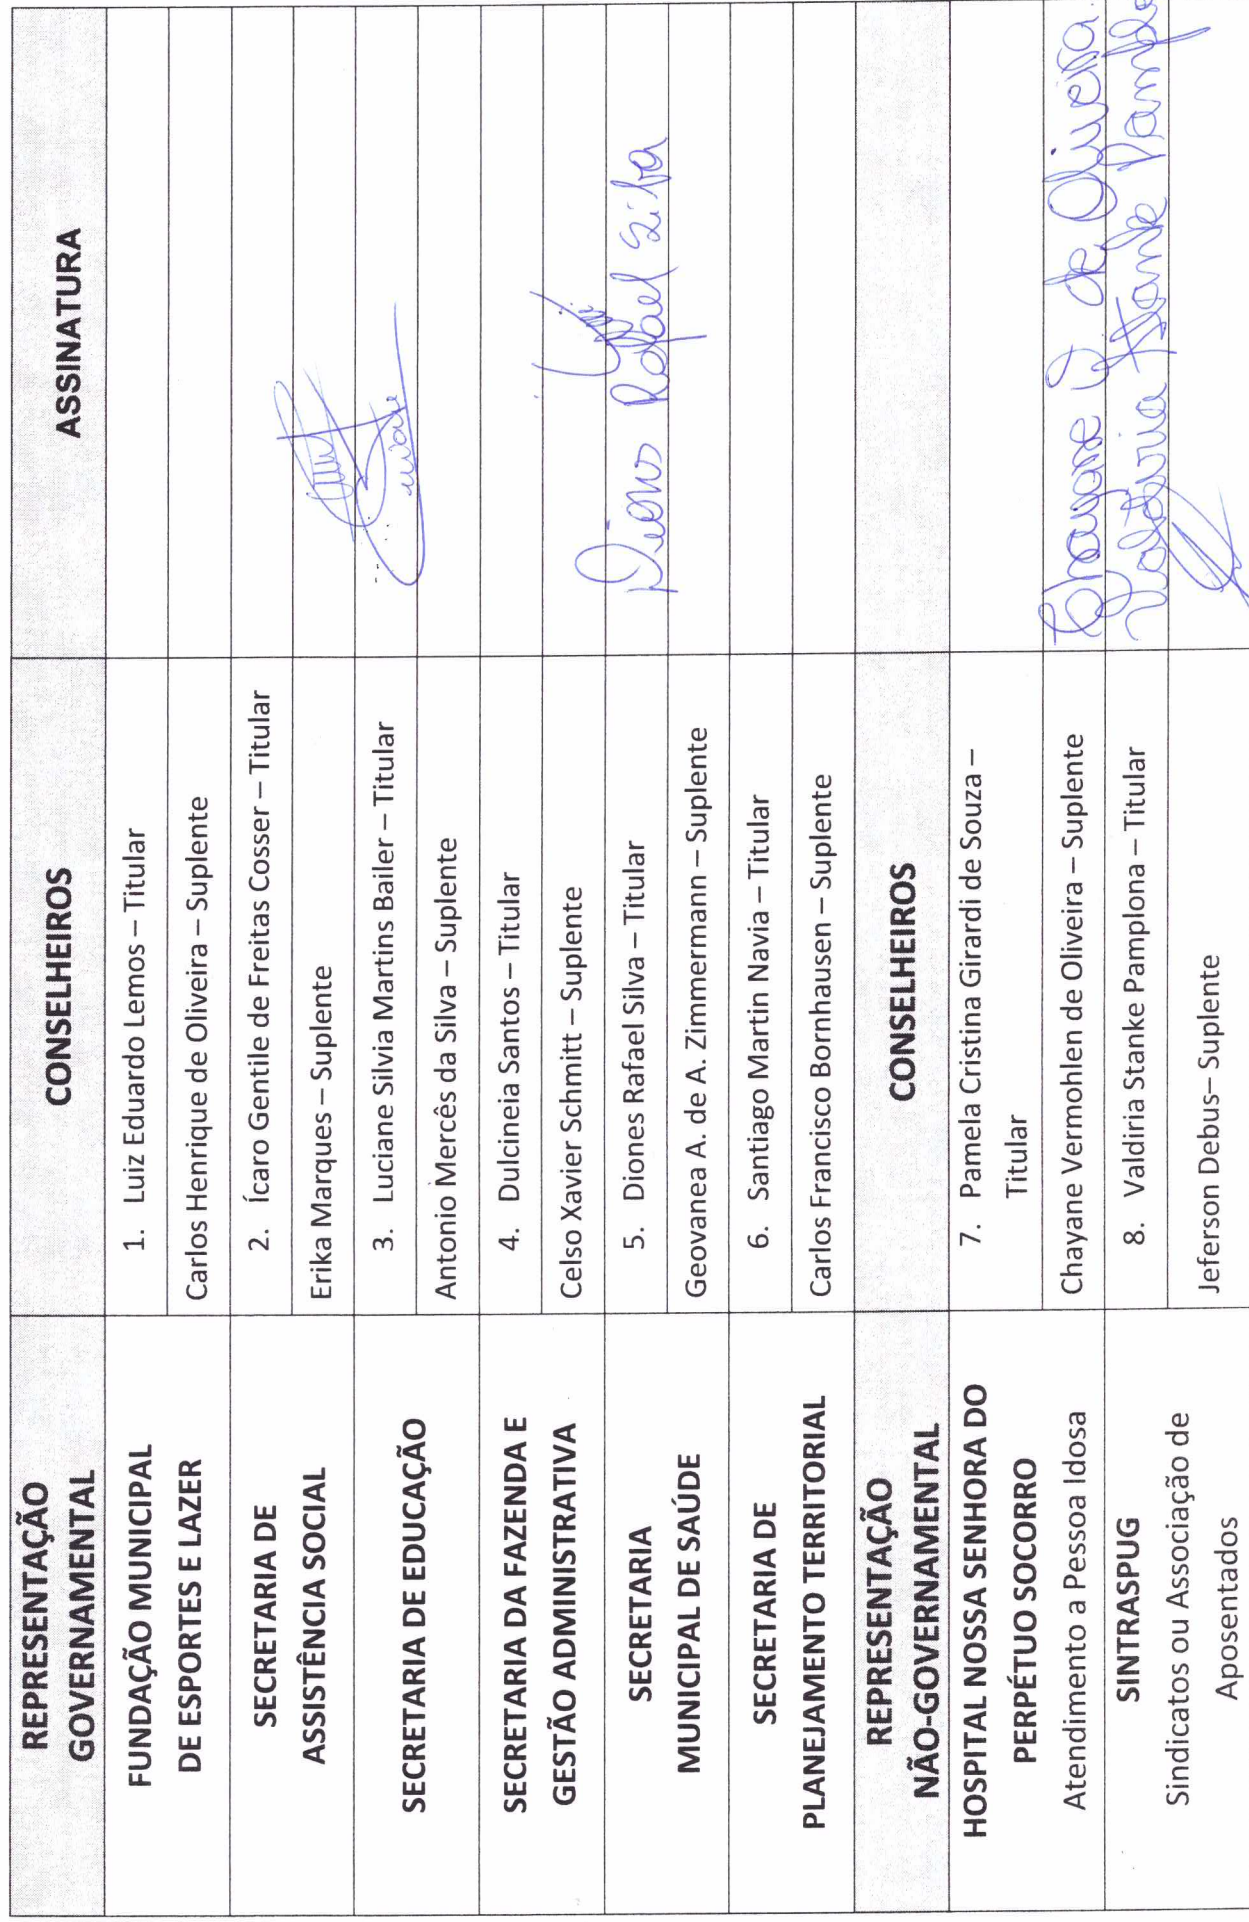 REPRESENTAÇÃO
GOVERNAMENTAL
CONSELHEIROS
ASSINATURA
FUNDAÇÃO MUNICIPAL
DE ESPORTES E LAZER
1. Luiz Eduardo Lemos – Titular
Carlos Henrique de Oliveira – Suplente
SECRETARIA DE
ASSISTÊNCIA SOCIAL
2. Ícaro Gentile de Freitas Cosser – Titular
Erika Marques – Suplente
SECRETARIA DE EDUCAÇÃO
3. Luciane Silvia Martins Bailer – Titular
Antonio Mercês da Silva – Suplente
SECRETARIA DA FAZENDA E
GESTÃO ADMINISTRATIVA
4. Dulcineia Santos – Titular
Celso Xavier Schmitt – Suplente
SECRETARIA
MUNICIPAL DE SAÚDE
5. Diones Rafael Silva – Titular
Diones Rafael Silva
Geovanea A. de A. Zimmermann – Suplente
SECRETARIA DE
PLANEJAMENTO TERRITORIAL
6. Santiago Martin Navia – Titular
Carlos Francisco Bornhausen – Suplente
REPRESENTAÇÃO
NÃO-GOVERNAMENTAL
CONSELHEIROS
HOSPITAL NOSSA SENHORA DO
PERPÉTUO SOCORRO
Atendimento a Pessoa Idosa
7. Pamela Cristina Girardi de Souza –
Titular
Chayane Vermohlen de Oliveira – Suplente
Chayane V de Oliveira.
SINTRASPUG
Sindicatos ou Associação de
Aposentados
8. Valdiria Stanke Pamplona – Titular
Valdiria Stanke Pamplo
Jeferson Debus– Suplente